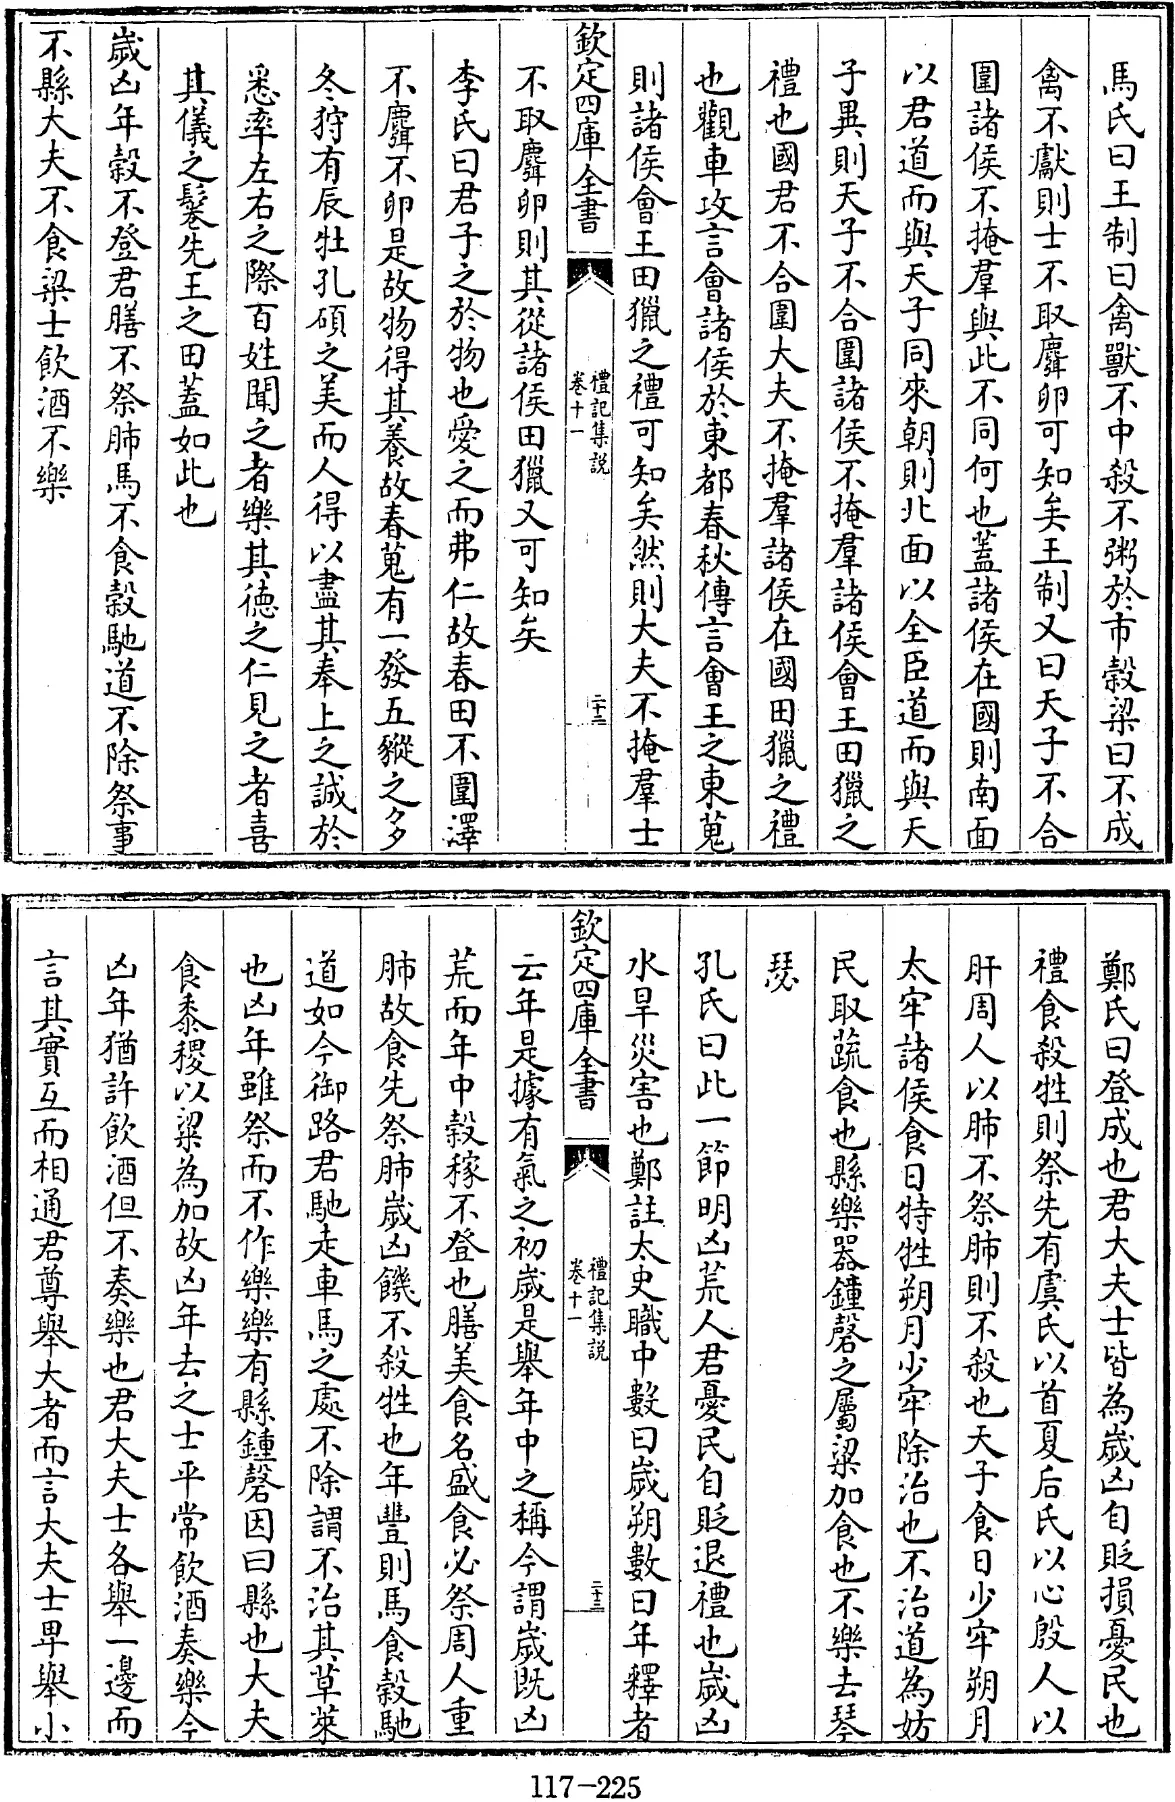 馬氏曰王制曰禽獸不中殺不粥於市穀梁曰不成
禽不獻則士不取麛卵可知矣王制又曰天子不合
圍諸侯不掩羣與此不同何也蓋諸侯在國則南面
以君道而與天子同來朝則北面以全臣道而與天
子異則天子不合圍諸侯不掩羣諸侯會王田獵之
禮也國君不合圍大夫不掩羣諸侯在國田獵之禮
也觀車攻言會諸侯於東都春秋傳言會王之東蒐
則諸侯會王田獵之禮可知矣然則大夫不掩羣士
欽定四庫全書
禮記集説
卷十一
二十二
不取麛卵則其從諸侯田獵又可知矣
李氏曰君子之於物也愛之而弗仁故春田不圍澤
不麛不卵是故物得其養故春蒐有一發五豵之多
冬狩有辰牡孔碩之美而人得以盡其奉上之誠於
悉率左右之際百姓聞之者樂其徳之仁見之者喜
其儀之鬈先王之田蓋如此也
歲凶年穀不登君膳不祭肺馬不食穀馳道不除祭事
不縣大夫不食粱士飲酒不樂
鄭氏曰登成也君大夫士皆為歲凶自貶損憂民也
禮食殺牲則祭先有虞氏以首夏后氏以心殷人以
肝周人以肺不祭肺則不殺也天子食日少牢朔月
太牢諸侯食日特牲朔月少牢除治也不治道為妨
民取蔬食也縣樂器鍾磬之屬粱加食也不樂去琴
瑟
孔氏曰此一節明凶荒人君憂民自貶退禮也歲凶
水旱災害也鄭註太史職中數曰歲朔數曰年釋者
欽定四庫全書
禮記集説
卷十一
二十三
云年是據有氣之初歲是舉年中之稱今謂歲既凶
荒而年中穀稼不登也膳美食名盛食必祭周人重
肺故食先祭肺歲凶饑不殺牲也年豐則馬食穀馳
道如今御路君馳走車馬之處不除謂不治其草萊
也凶年雖祭而不作樂樂有縣鍾磬因曰縣也大夫
食黍稷以粱為加故凶年去之士平常飲酒奏樂今
凶年猶許飲酒但不奏樂也君大夫士各舉一邊而
言其實互而相通君尊舉大者而言大夫士卑舉小
117-225